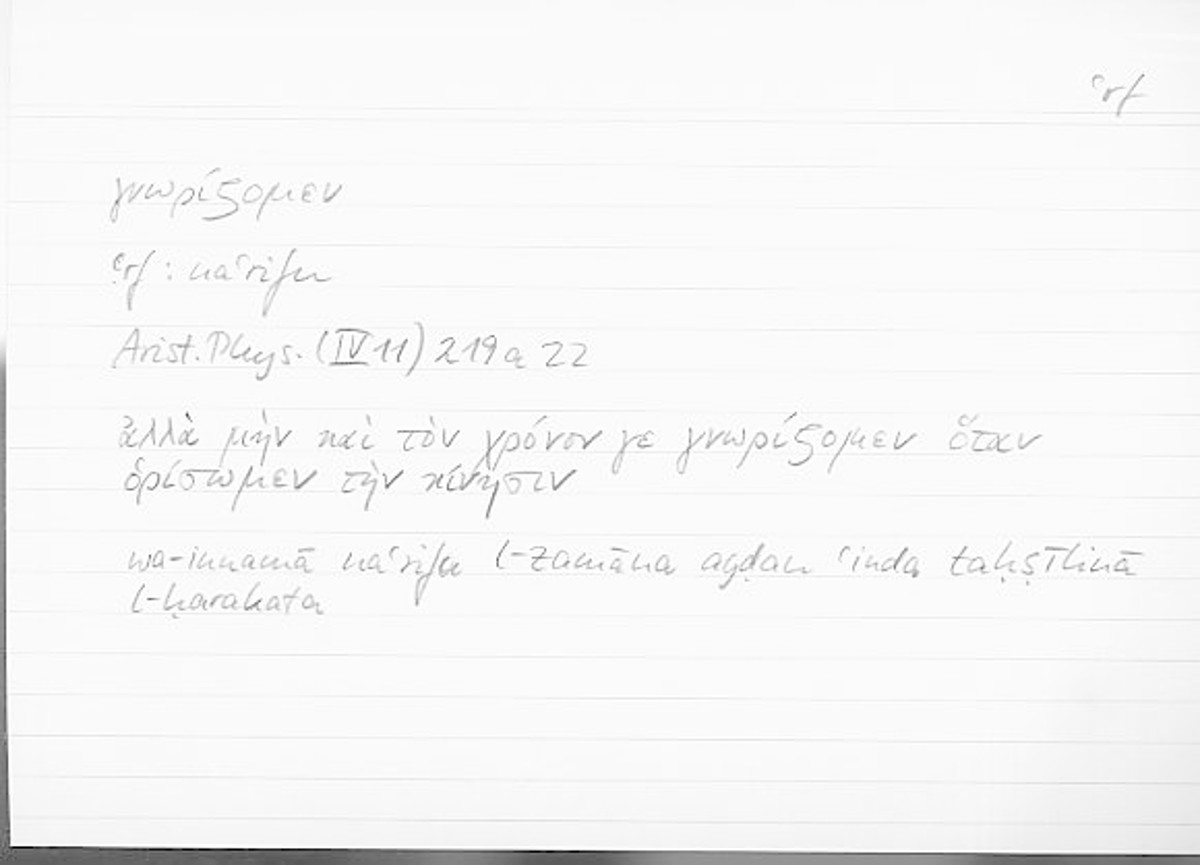 ʿrf
γνωρίζομεν
ʿrf : naʿrifu
Arist. Phys. (IV 11) 219 a 22
ἀλλὰ μὴν καὶ τὸν χρόνον γε γνωρίζομεν ὅταν
ὁρίσωμεν τὴν κίνησιν
wa-innamā naʿrifu l-zamāna ayḍan ʿinda taḥṣīlinā
l-ḥarakata